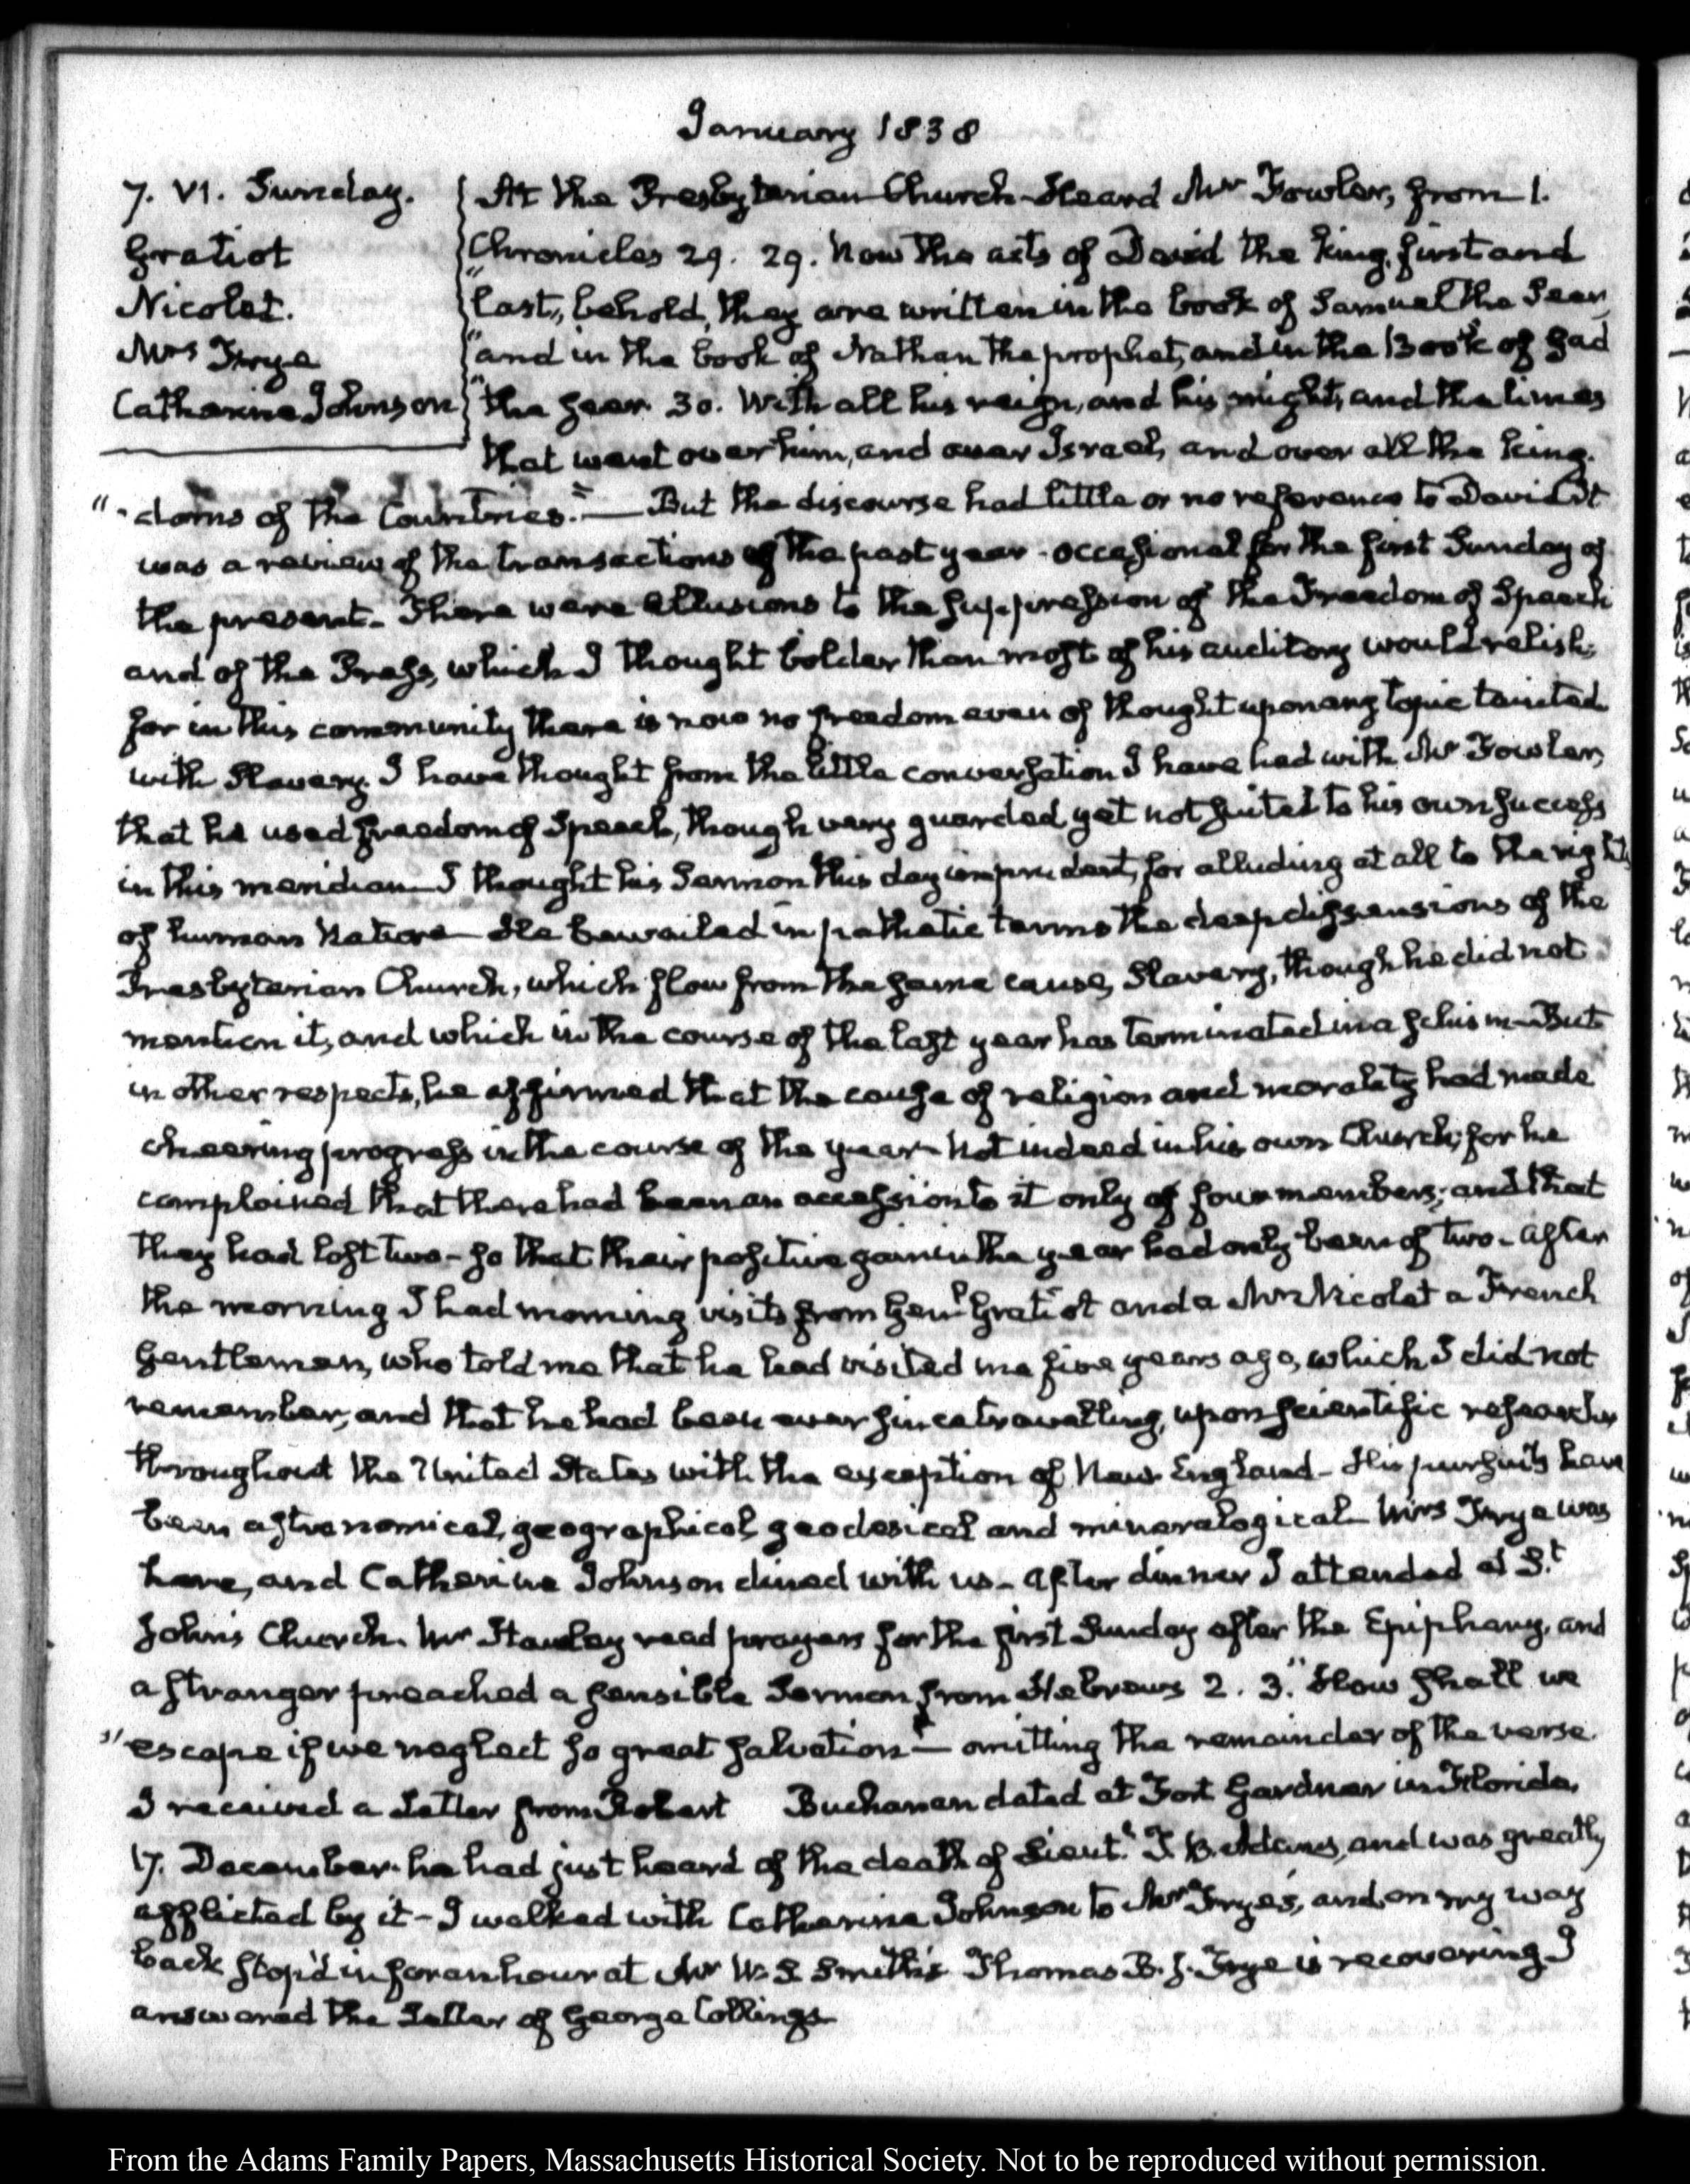 January 1838
7. VI. Sunday.
Gratiot
Nicolet.
Mrs Frye
Catharine Johnson
At the Presbyterian Church Heard Mr Fowler, from 1.
Chronicles 29. 29. Now the acts of David the King, first and
"last, behold, they are written in the book of Samuel the Seer,
"and in the book of Nathan the prophet, and in the Book of Gad
"the Seer 30. With all his reign, and his might, and the times
that went over him, and over Israel, and over all the King-
"-doms of the Countries."— But the discourse had little or no reference to David It
was a review of the transactions of the past year - occasional for the first Sunday of
the present. There were allusions to the suppression of the Freedom of Speech
and of the Press, which I thought bolder than most of his auditory would relish;
for in this community there is now no freedom even of thought upon any topic tainted
with Slavery. I have thought from the little conversation I have had with Mr Fowler,
that he used freedom of Speech, though very guarded yet not suited to his own success
in this meridian I thought his Sermon this day imprudent, for alluding at all to the rights
of human Nature He bewailed in pathetic terms the deep dissensions of the
Presbyterian Church, which flow from the same cause, Slavery, though he did not
mention it, and which in the course of the last year has terminated in a schism—But
in other respects, he affirmed that the cause of religion and morality had made
cheering progress in the course of the year—not indeed in his own Church; for he
complained that there had been an accession to it only of four members; and that
they had lost two - so that their positive gain in the year had only been of two - After
the morning I had morning visits from Genl Gratiot and a Mr Nicolet a French
Gentleman, who told me that he had visited me five years ago, which I did not
remember, and that he had been ever since travelling, upon scientific researches
throughout the United States with the exception of New England - His pursuits have
been astronomical, geographical, geodesical and mineralogical Mrs Frye was
here, and Catherine Johnson dined with us - After dinner I attended at St
John's Church. Mr Hawley read prayers for the first Sunday after the Epiphany, and
a stranger preached a sensible Sermon from Hebrews 2. 3. "How shall we
"escape if we neglect so great salvation"— omitting the remainder of the verse
I received a Letter from Robert Buchanan dated at Fort Gardner in Florida,
17. December. he had just heard of the death of Lieutt T. B. Adams, and was greatly
afflicted by it - I walked with Catherine Johnson to Mr Frye's, and on my way
back stop'd in for an hour at Mr W. S. Smith's Thomas B. J. Frye is recovering I
answered the Letter of George Collings
From the Adams Family Papers, Massachusetts Historical Society. Not to be reproduced without permission.